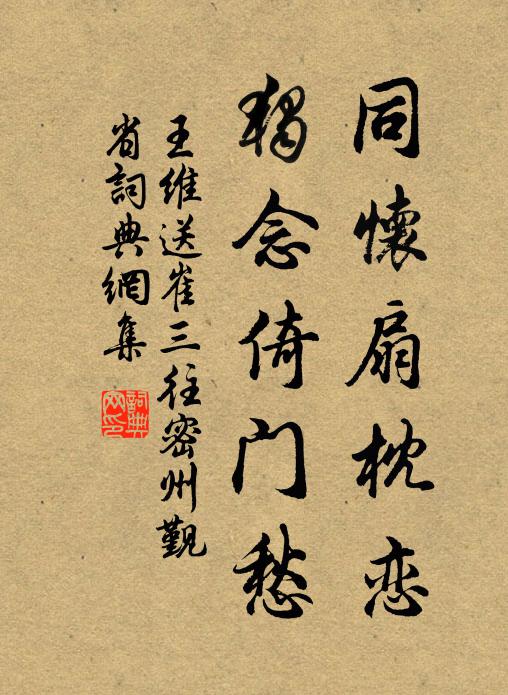 同懷扇枕恋
獨念倚门愁
王維送崔三往密州覲
省詞典網集
詞典
网印